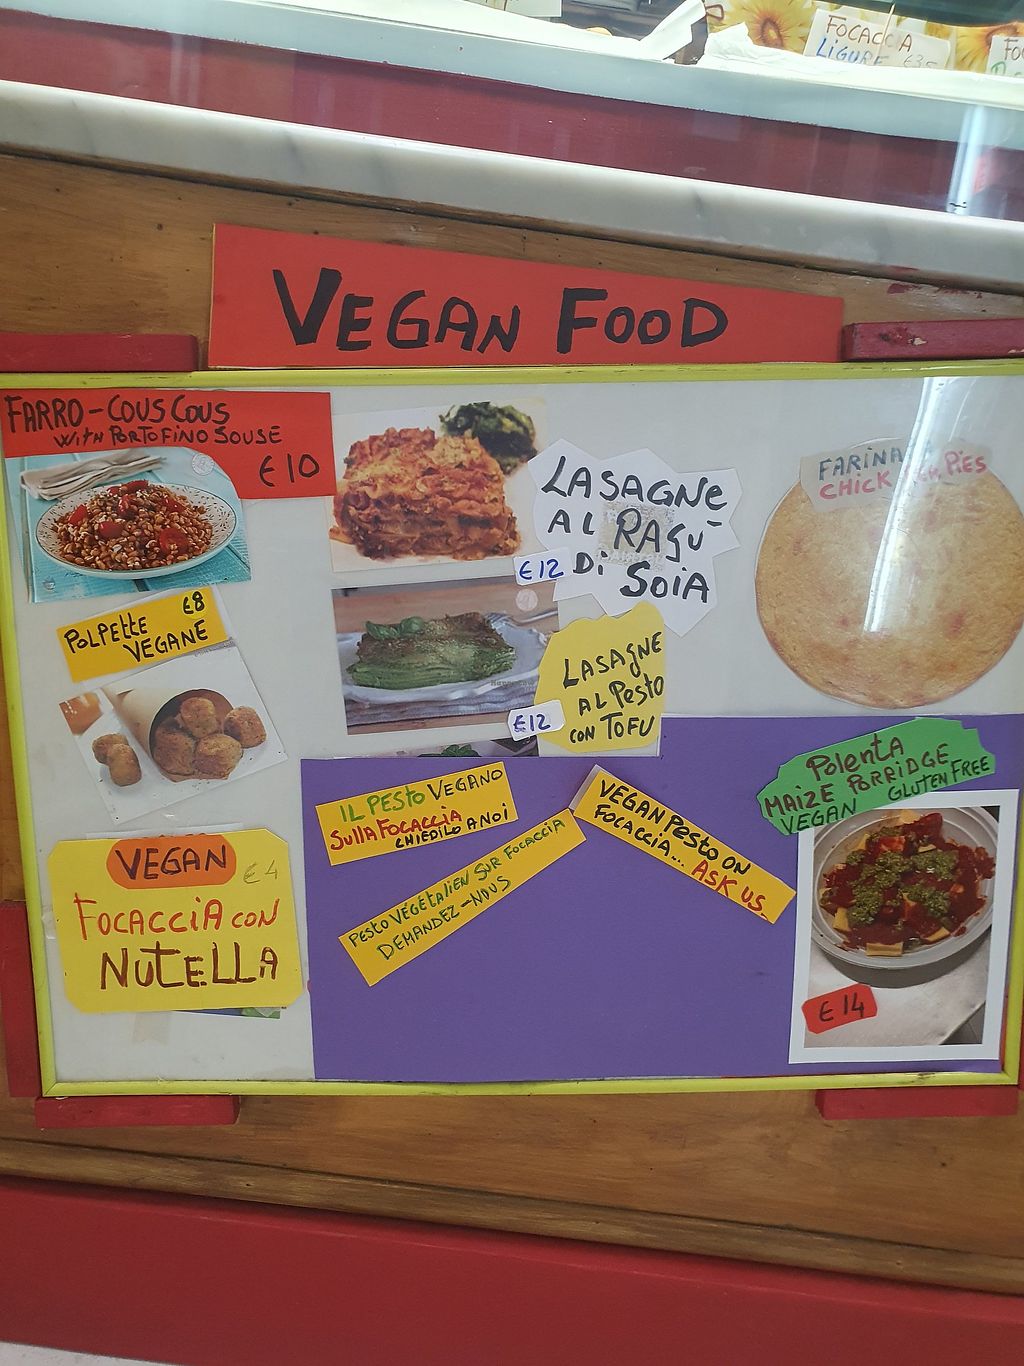 FOCACCIA
LIGURE
VEGAN FOOD
FARRO-COUSCOUS
WITH PORTOFINO SOUSE
€10
LASAGNE
AL RAGÙ
DI SOIA
€12
FARINA
CHICK PIES
€8
POLPETTE
VEGANE
LASAGNE
AL PESTO
CON TOFU
€12
POLENTA
MAIZE PORRIDGE
VEGAN GLUTEN FREE
€14
IL PESTO VEGANO
SULLA FOCACCIA
CHIEDILO A NOI
VEGAN PESTO ON
FOCACCIA... ASK US..
PESTO VÉGÉTALIEN SUR FOCACCIA
DEMANDEZ-NOUS
VEGAN €4
FOCACCIA CON
NUTELLA